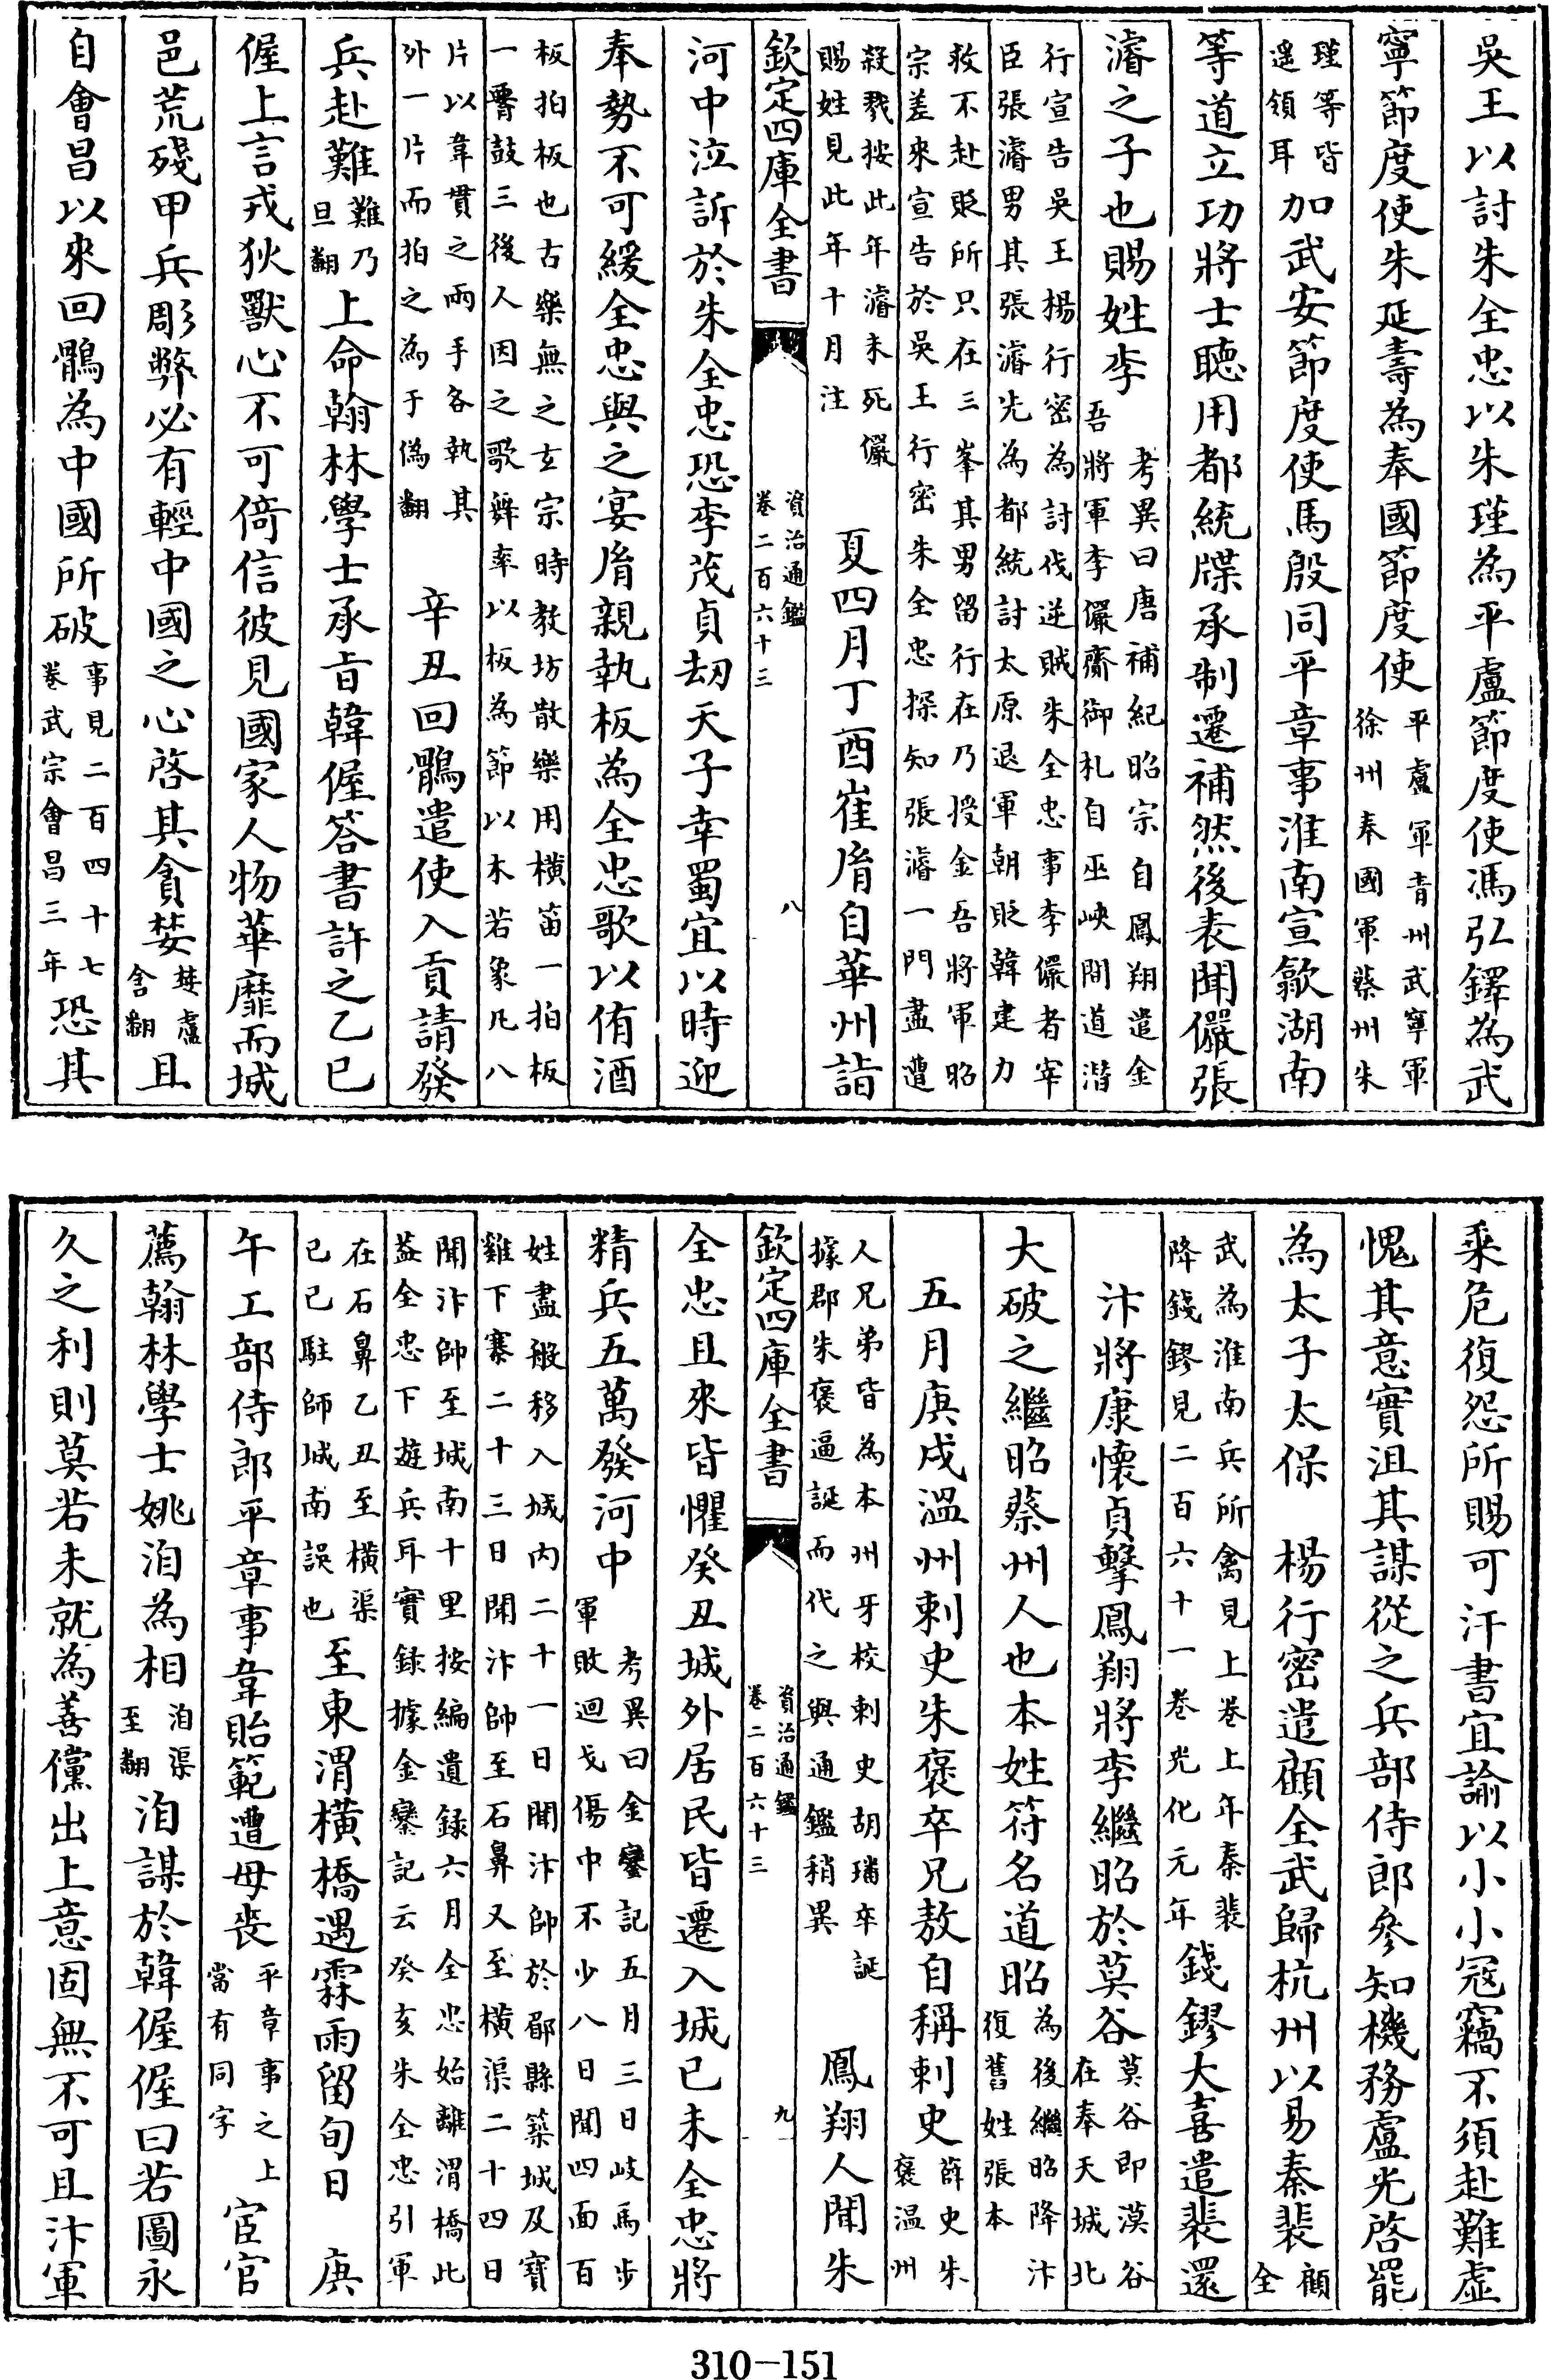 吳王以討朱全忠以朱瑾為平盧節度使馮弘鐸為武
寧節度使朱延壽為奉國節度使平盧軍青州武寧軍徐州奉國軍蔡州朱
瑾等皆遥領耳加武安節度使馬殷同平章事淮南宣歙湖南
等道立功將士聽用都統牒承制遷補然後表聞儼張
濬之子也賜姓李考異曰唐補紀昭宗自鳳翔遣金吾將軍李儼齎御札自巫峽間道潛
行宣告吳王楊行密為討伐逆賊朱全忠事李儼者宰臣張濬男其張濬先為都統討太原退軍朝貶韓建力
救不赴貶所只在三峯其男留行在乃授金吾將軍昭宗差來宣告於吳王行密朱全忠探知張濬一門盡遭
殺戮按此年濬未死儼賜姓見此年十月注夏四月丁酉崔胤自華州詣
欽定四庫全書 資治通鑑卷二百六十三 八
河中泣訴於朱全忠恐李茂貞刼天子幸蜀宜以時迎
奉勢不可緩全忠與之宴胤親執板為全忠歌以侑酒
板拍板也古樂無之玄宗時教坊散樂用横笛一拍板一腰鼓三後人因之歌舞率以板為節以木若象凡八
片以韋貫之兩手各執其外一片而拍之為于偽翻辛丑回鶻遣使入貢請發
兵赴難難乃旦翻上命翰林學士承旨韓偓答書許之乙巳
偓上言戎狄獸心不可倚信彼見國家人物華靡而城
邑荒殘甲兵彫弊必有輕中國之心啓其貪婪婪盧含翻且
自會昌以來回鶻為中國所破事見二百四十七卷武宗會昌三年恐其
乘危復怨所賜可汗書宜諭以小小冦竊不須赴難虚
愧其意實沮其謀從之兵部侍郎參知機務盧光啓罷
為太子太保 楊行密遣顧全武歸杭州以易秦裴顧全
武為淮南兵所禽見上卷上年秦裴降錢鏐見二百六十一卷光化元年錢鏐大喜遣裴還
汴將康懷貞擊鳳翔將李繼昭於莫谷莫谷即漠谷在奉天城北
大破之繼昭蔡州人也本姓符名道昭為後繼昭降汴復舊姓張本
五月庚戌溫州刺史朱褒卒兄敖自稱刺史薛史朱褒温州
人兄弟皆為本州牙校刺史胡璠卒誕據郡朱褒逼誕而代之與通鑑稍異鳳翔人聞朱
欽定四庫全書 資治通鑑卷二百六十三 九
全忠且來皆懼癸丑城外居民皆遷入城己未全忠將
精兵五萬發河中考異曰金鑾記五月三日岐馬步軍敗迴戈傷中不少八日聞四面百
姓盡般移入城内二十一日聞汴帥於郿縣築城及寶雞下寨二十三日聞汴帥至石鼻又至橫渠二十四日
聞汴帥至城南十里按編遺録六月全忠始離渭橋此益全忠下遊兵耳實録據金鑾記云癸亥朱全忠引軍
在石鼻乙丑至橫渠己巳駐師城南誤也至東渭橫橋遇霖雨留旬日 庚
午工部侍郎平章事韋貽範遭母喪平章事之上當有同字宦官
薦翰林學士姚洎為相洎渠至翻洎謀於韓偓偓曰若圖永
久之利則莫若未就為善儻出上意固無不可且汴軍
310-151